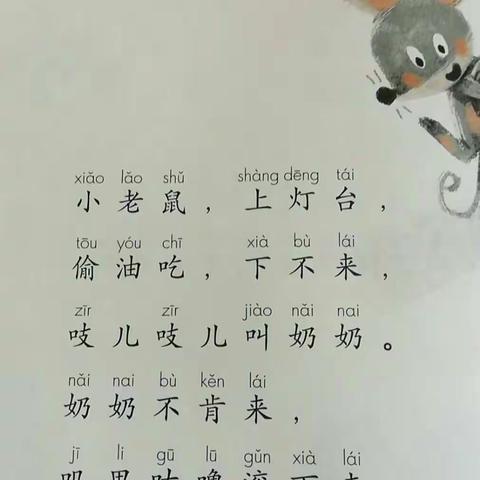 xiǎo lǎo shǔ shàng dēng tái
小老鼠，上灯台，
tōu yóu chī xià bù lái
偷油吃，下不来，
zīr zīr jiào nǎi nai
吱儿吱儿叫奶奶。
nǎi nai bù kěn lái
奶奶不肯来，
jī li gū lū gǔn xià lái
叽里咕噜滚下来